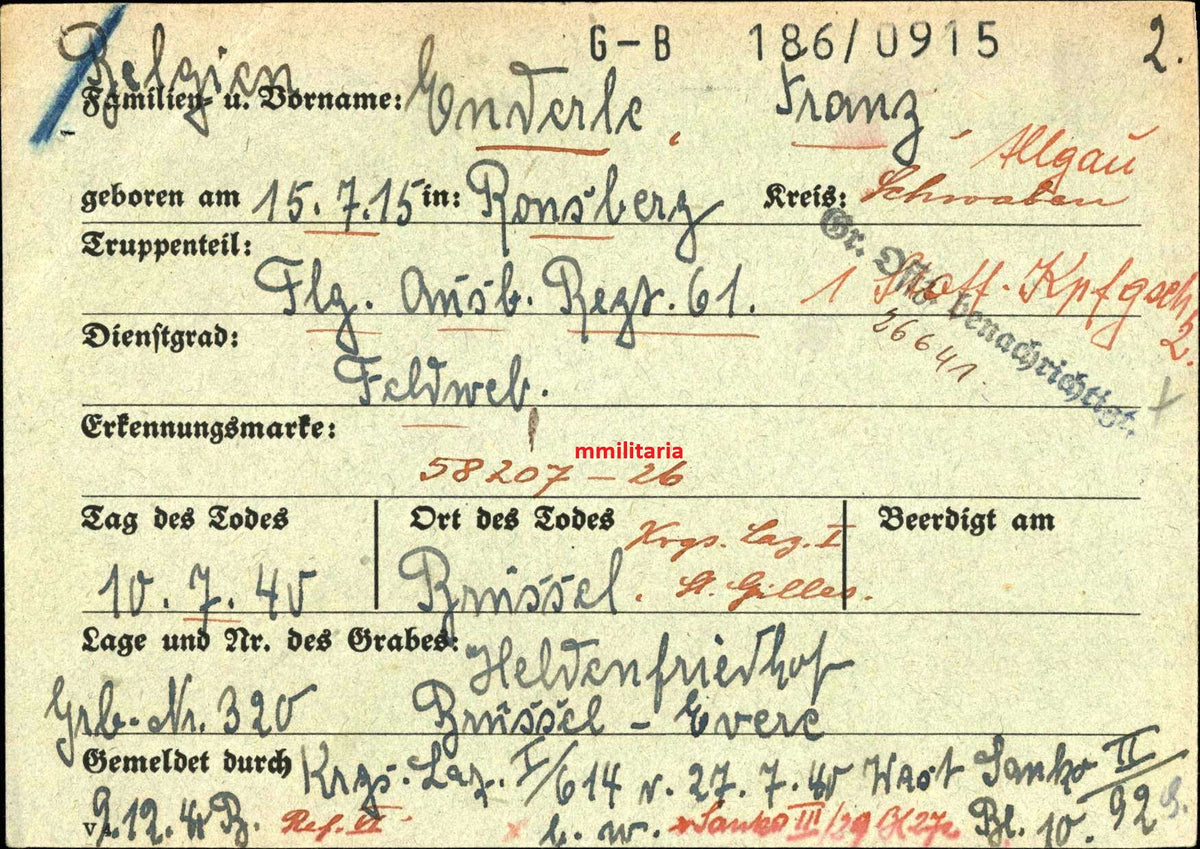 G-B 186/0915 2.
Belgien
Familien- u. Vorname: Enderle, Franz
Allgäu
geboren am 15.7.15 in: Ronsberg Kreis: Schwaben
Truppenteil:
Flg. Ausb. Regt. 61. 1 Staff. Kpfgsch. 2.
Gr. Offz. benachrichtigt.
26641.
Dienstgrad:
Feldweb.
Erkennungsmarke:
mmilitaria
58207 - 26
Tag des Todes Ort des Todes Krgs. Laz. I Beerdigt am
10. 7. 40 Brüssel, St. Gilles.
Lage und Nr. des Grabes: Heldenfriedhof
Grb. Nr. 320 Brüssel - Evere
Gemeldet durch Krgs. Laz. I/614 v. 27. 7. 40 Wast Sanko II/92
9.12.40 B. Ref. II b. w. Sanko III/29 Bl. 10.